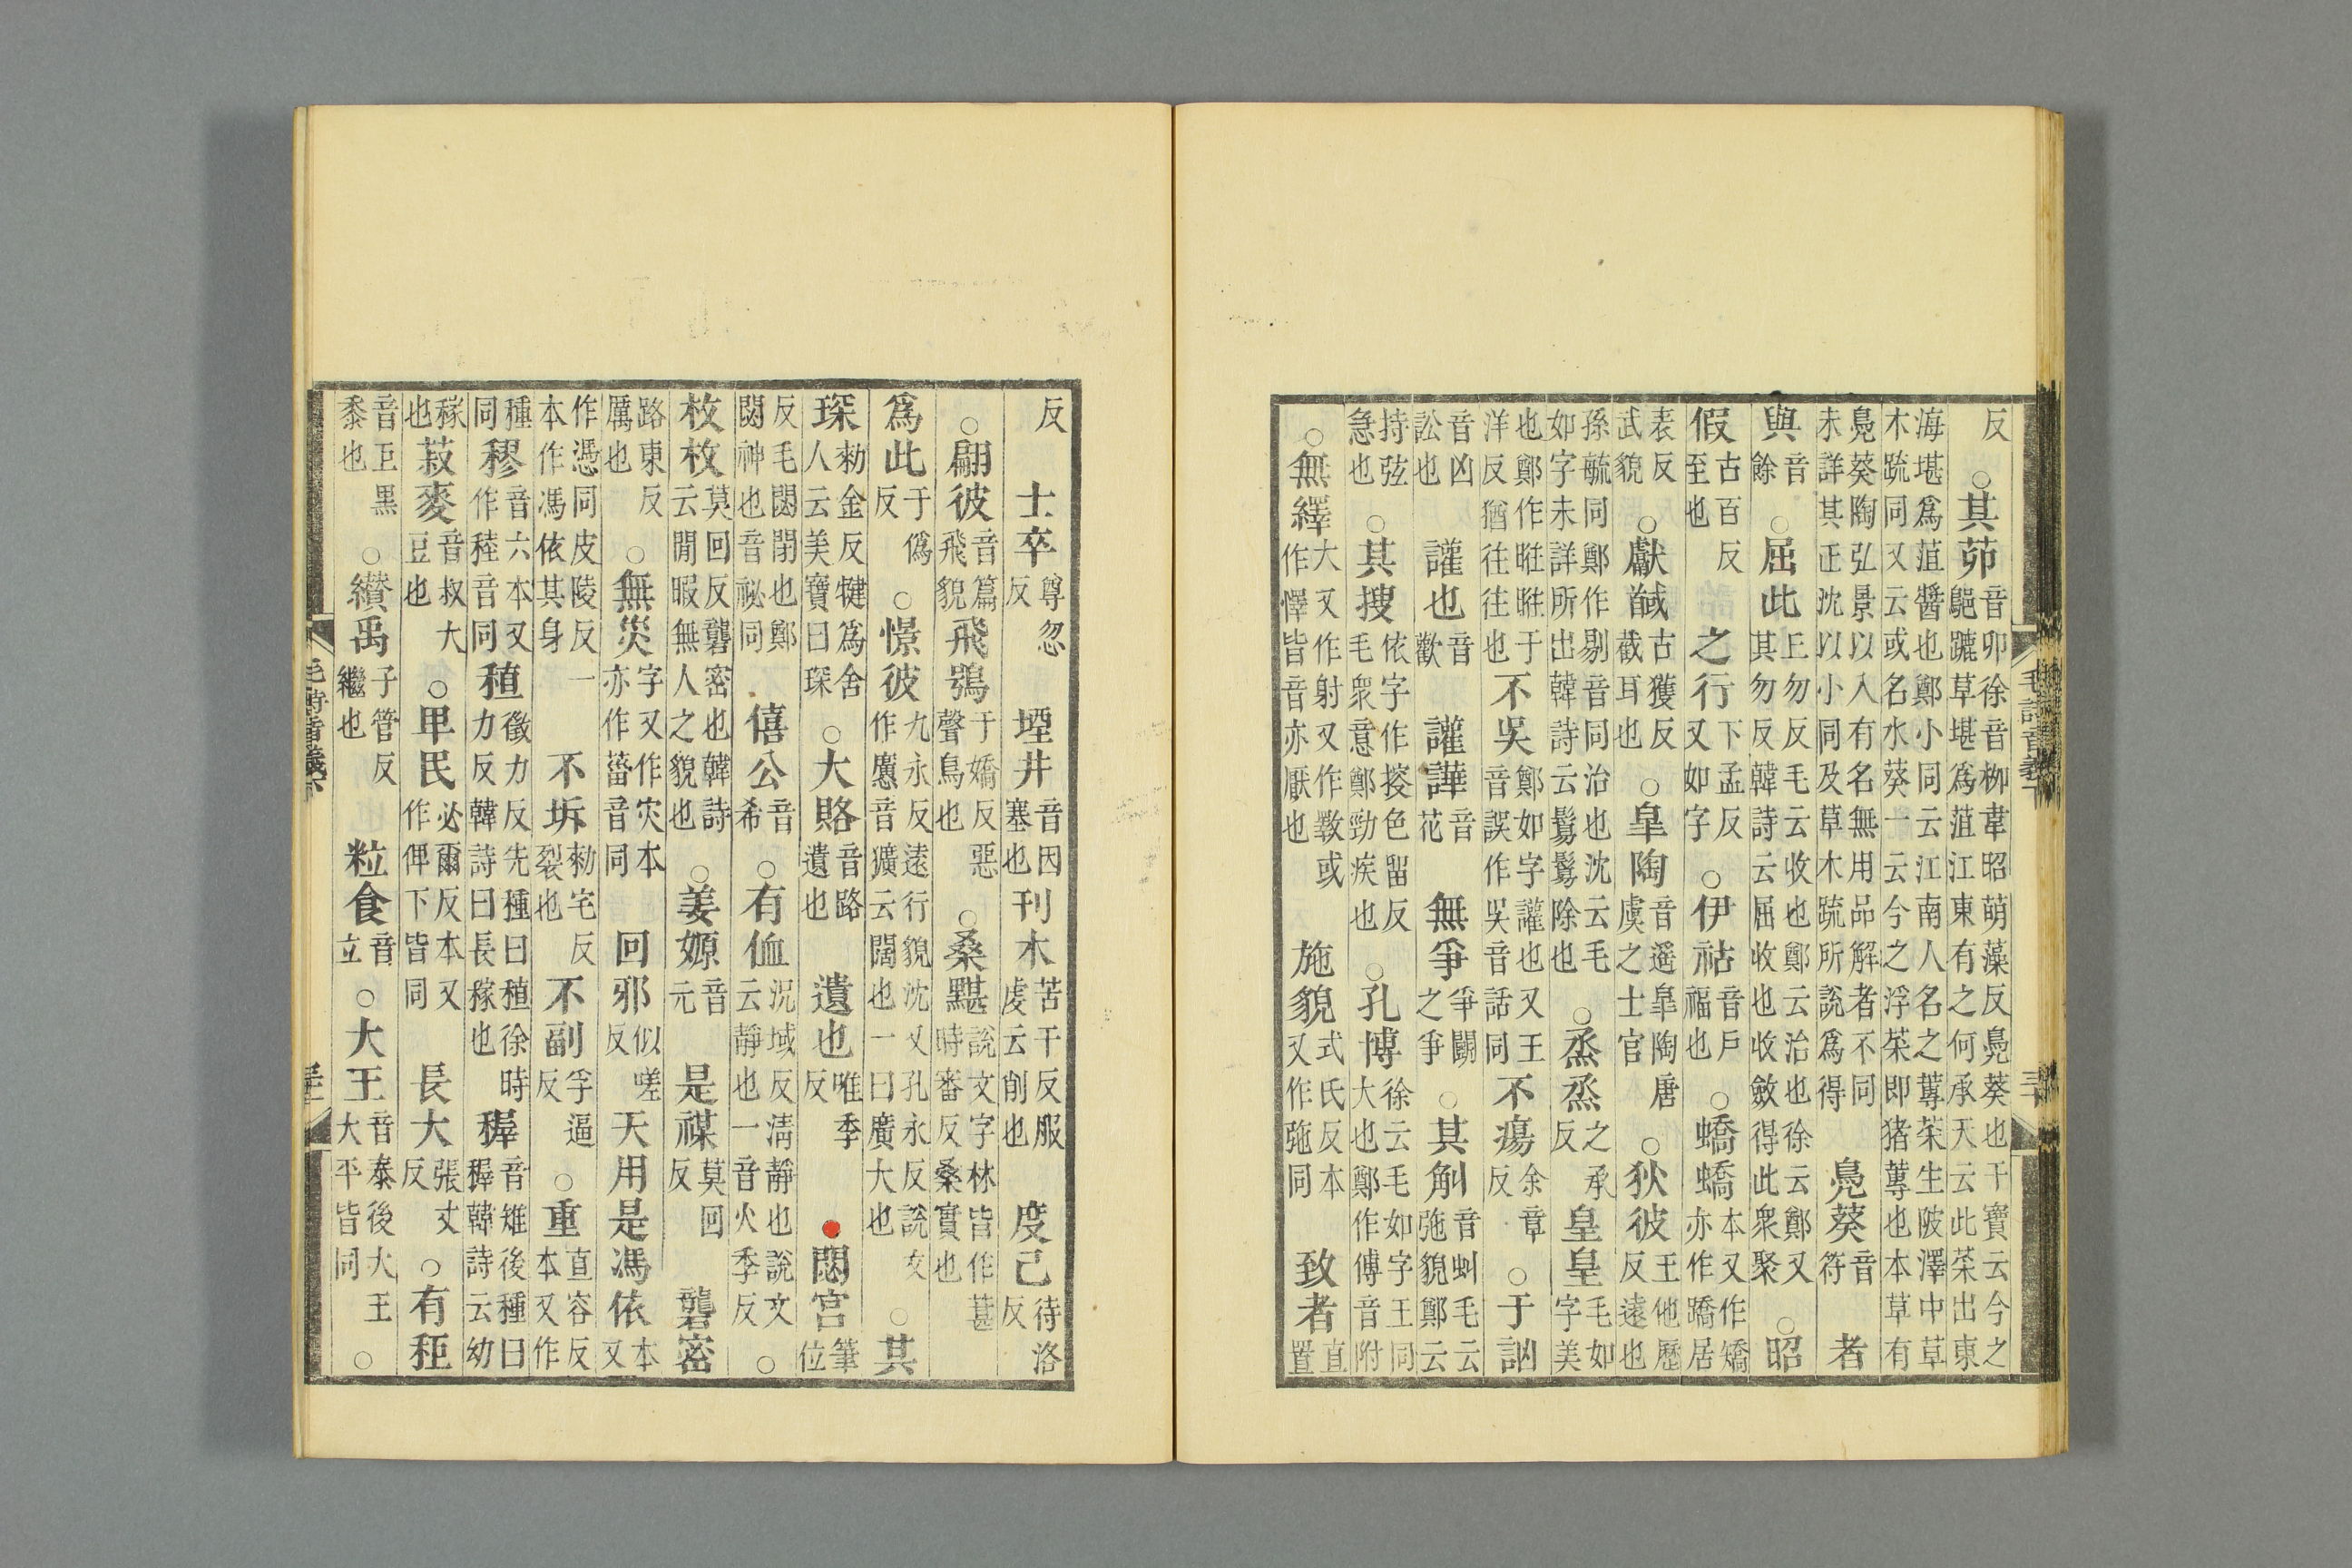 反　○其茆音卯徐音柳韋昭萌藻反鳧葵也干寶云今之䰀蹗草堪爲菹江東有之何承天云此菜出東
海堪爲菹醬也鄭小同云江南人名之蓴菜生陂澤中草木疏同又云或名水葵一云今之浮菜即猪蓴也本草有
鳧葵陶弘景以入有名無用品解者不同未詳其正沈以小同及草木疏所說爲得　鳧葵音符　者
與音餘　○屈此丘勿反毛云收也鄭云治也徐云鄭又其勿反韓詩云屈收也收斂得此衆聚　○昭
假古百反至也　之行下孟反又如字　○伊祜音戶福也　○蟜蟜本又作嬌亦作蹻居
表反武貌　○獻馘古獲反截耳也　○皐陶音遥皐陶唐虞之士官　○狄彼王他歷反遠也
孫毓同鄭作剔音同治也沈云毛如字未詳所出韓詩云鬄鬄除也　○烝烝之承反　皇皇毛如字美
也鄭作暀暀于洋反猶往往也　不吳鄭如字讙也又王音誤作吳音話同　不瘍余章反　○于訩
音凶訟也　讙也音歡　讙譁音花　無爭爭鬭之爭　○其觓音虯毛云弛貌鄭云
持弦急也　○其捜依字作接色留反毛衆意鄭勁疾也　○孔博徐云毛如字王同大也鄭作傅音附
○無繹大又作射又作斁或作懌皆音亦厭也　施貌式氏反本又作弛同　致者直置
毛詩音義下　三十
反　士卒尊忽反　堙井音因塞也　刊木苦干反服虔云削也　度己待洛反
○翩彼音篇飛貌　飛鴞于嬌反惡聲鳥也　○桑黮說文字林皆作葚時審反桑實也
爲此于僞反　○憬彼九永反遠行貌沈又孔永反說文作懬音獷云闊也一曰廣大也　○其
琛勑金反犍爲舍人云美寶曰琛　○大賂音路遺也　遺也唯季反　閟宮筆位
反毛閟閉也鄭閟神也音祕同　僖公音希　○有侐況域反清靜也說文云靜也一音火季反　○
枚枚莫回反礱密也韓詩云閒暇無人之貌也　○姜嫄音元　是禖莫回反　礱密
路東反厲也　○無災字又作灾本亦作菑音同　回邪似嗟反　天用是馮依本又
作憑同皮陵反一本作作馮依其身　不坼勑宅反裂也　不副孚逼反　○重直容反本又作
種同　穋音六本又作稑音同　稙徵力反先種曰稙徐時力反韓詩曰長稼也　稺音雉後種曰稺韓詩云幼
稼也　菽麥音叔大豆也　○甲民必爾反本又作俾下皆同　長大張丈反　○有秬
音巨黑黍也　○纘禹子管反繼也　粒食音立　○大王音泰後大王大平皆同　○
毛詩音義下　三十一